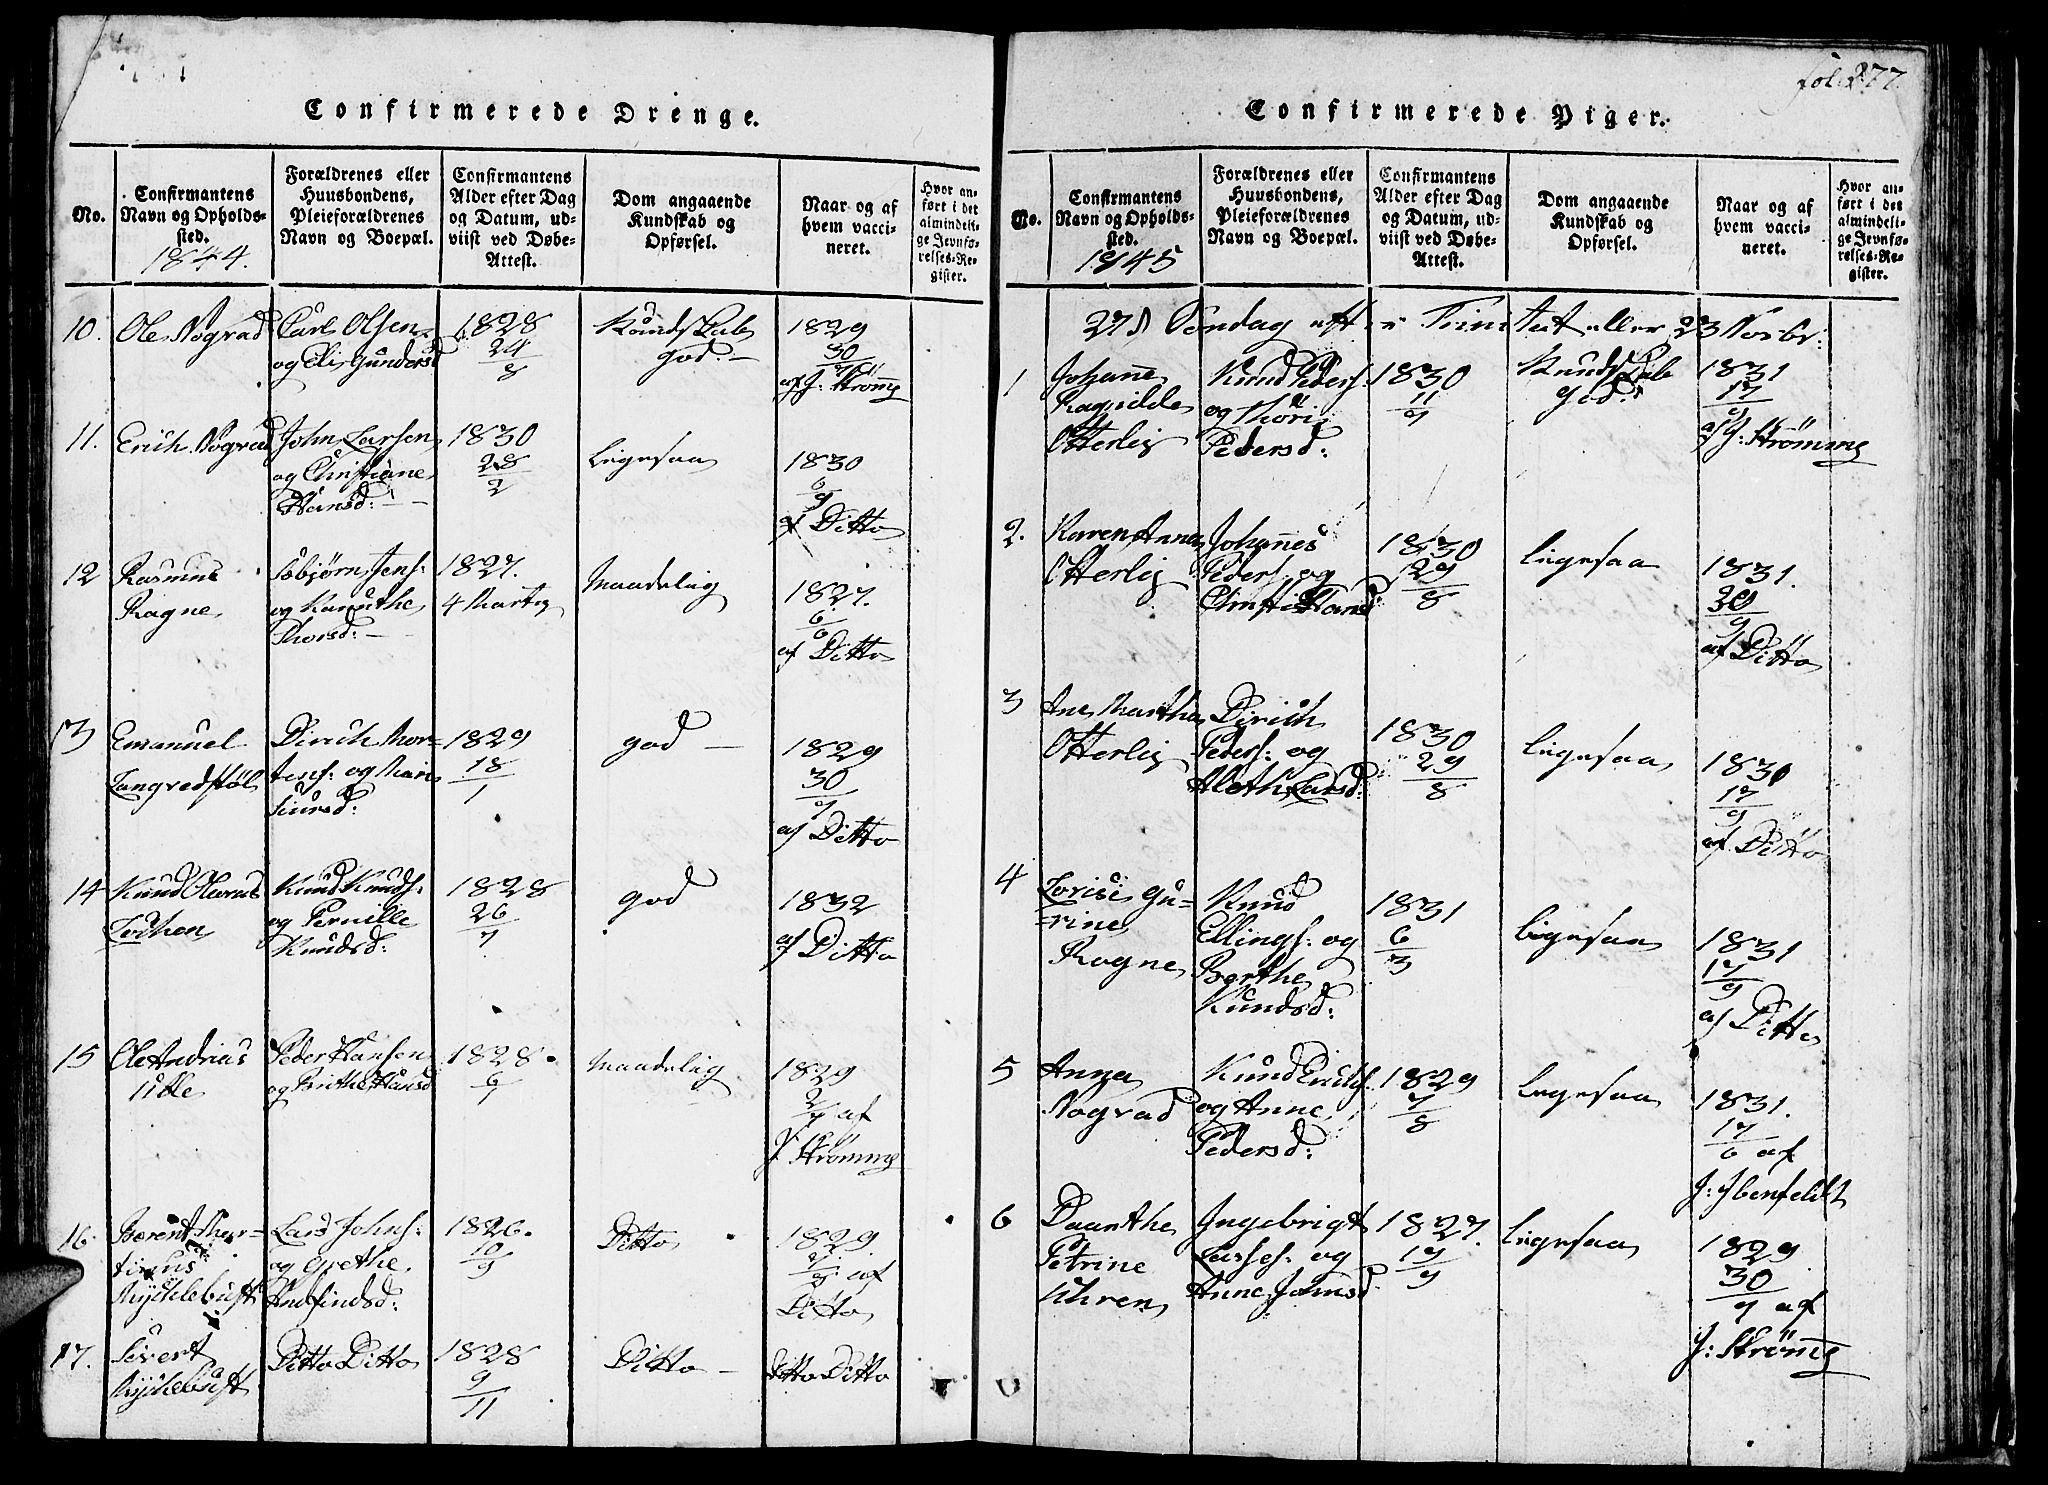 Confirmerede Drenge.
No.
Confirmantens
Navn og Opholds-
sted.
1844.
Forældrenes eller
Huusbondens,
Pleieforældrenes
Navn og Boepæl.
Confirmantens
Alder efter Dag
og Datum, ud-
viist ved Døbe-
Attest.
Dom angaaende
Kundskab og
Opførsel.
Naar og af
hvem vacci-
neret.
Hvor an-
ført i det
almindeli-
ge Jevnfø-
relses-Re-
gister.
10.
Ole Nograd
Carl Olsen
og Elis Gundersd
1828
24
8
Kundskab
god —
1829
30
af J: Strömme
11.
Erich Nograd
John Larsen
og Christiane
Hansd: —
1830
28
2
Ligesaa
1830
6
9
af Ditto
12
Rasmus
Ragne
Asbjørn Jens:
og Karnthe
Thorsd: —
1827.
4 Marty
Maadelig
1827.
6
6
af Ditto
13
Emanuel
Langredstöl
Dirich Mor-
tens: og Mari
Siursd:
1829
18
1
god —
1829
30
9
af Ditto
14
Knud Olerus
Lothen
Knud Knuds:
og Pernille
Knudsd:
1828
26
7
god
1832
af Ditto
15
Ole Andrias
Utle
Peder Hansen
og Brithe Hansd
1828.
6
7
Maadelig
1829
2/7 af
J: Strömme
16.
Berent Mar-
tinus
Myklebust
Lars Johns:
og Grethe
Andfindsd:
1826.
10
9
Ditto
1829.
af
Ditto
17.
Sivert
Myklebust
Ditto Ditto
1828
9
11
Ditto —
Ditto Ditto
fol: 277.
Confirmerede Piger.
No.
Confirmantens
Navn og Opholds-
sted.
1845
Forældrenes eller
Huusbondens,
Pleieforældrenes
Navn og Boepæl.
Confirmantens
Alder efter Dag
og Datum, ud-
viist ved Døbe-
Attest.
Dom angaaende
Kundskab og
Opførsel.
Naar og af
hvem vacci-
neret.
Hvor an-
ført i det
almindeli-
ge Jevnfø-
relses-Re-
gister.
27d Söndag efter Trinitat eller 23 Novbr:
1
Johanne
Ragnilde
Otterlig
Knud Peders:
og Thori
Pedersd:
1830
11
9
Kundskab
god.
1831
17
9
af J: Strömme
2.
Karen Anna
Otterlig
Johannes
Peders: og
Christi Hansd
1830
29
8
Ligesaa
1831.
30
9
af Ditto
3
Ane Marthe
Otterlig
Dirich
Peders: og
Aleth Larsd:
1830
29
8
Ligesaa
1830
17
9
af Ditto
4
Lovise Gu-
rine
Ragne
Knud
Ellings: og
Berthe
Kundsd:
1831
6
3
Ligesaa
1831
17
9
af Ditto
5
Anna
Nograd
Kund Erichs:
og Anne
Pedersd:
1829
7
8
Ligesaa
1831.
17
6 af
J: Ibenfeldt
6
Daarthe
Petrine
Uhren
Ingebrigt
Larses: og
Anne Johnsd
1827.
17
9
Ligesaa
1829
30
9 af
J: Strömme